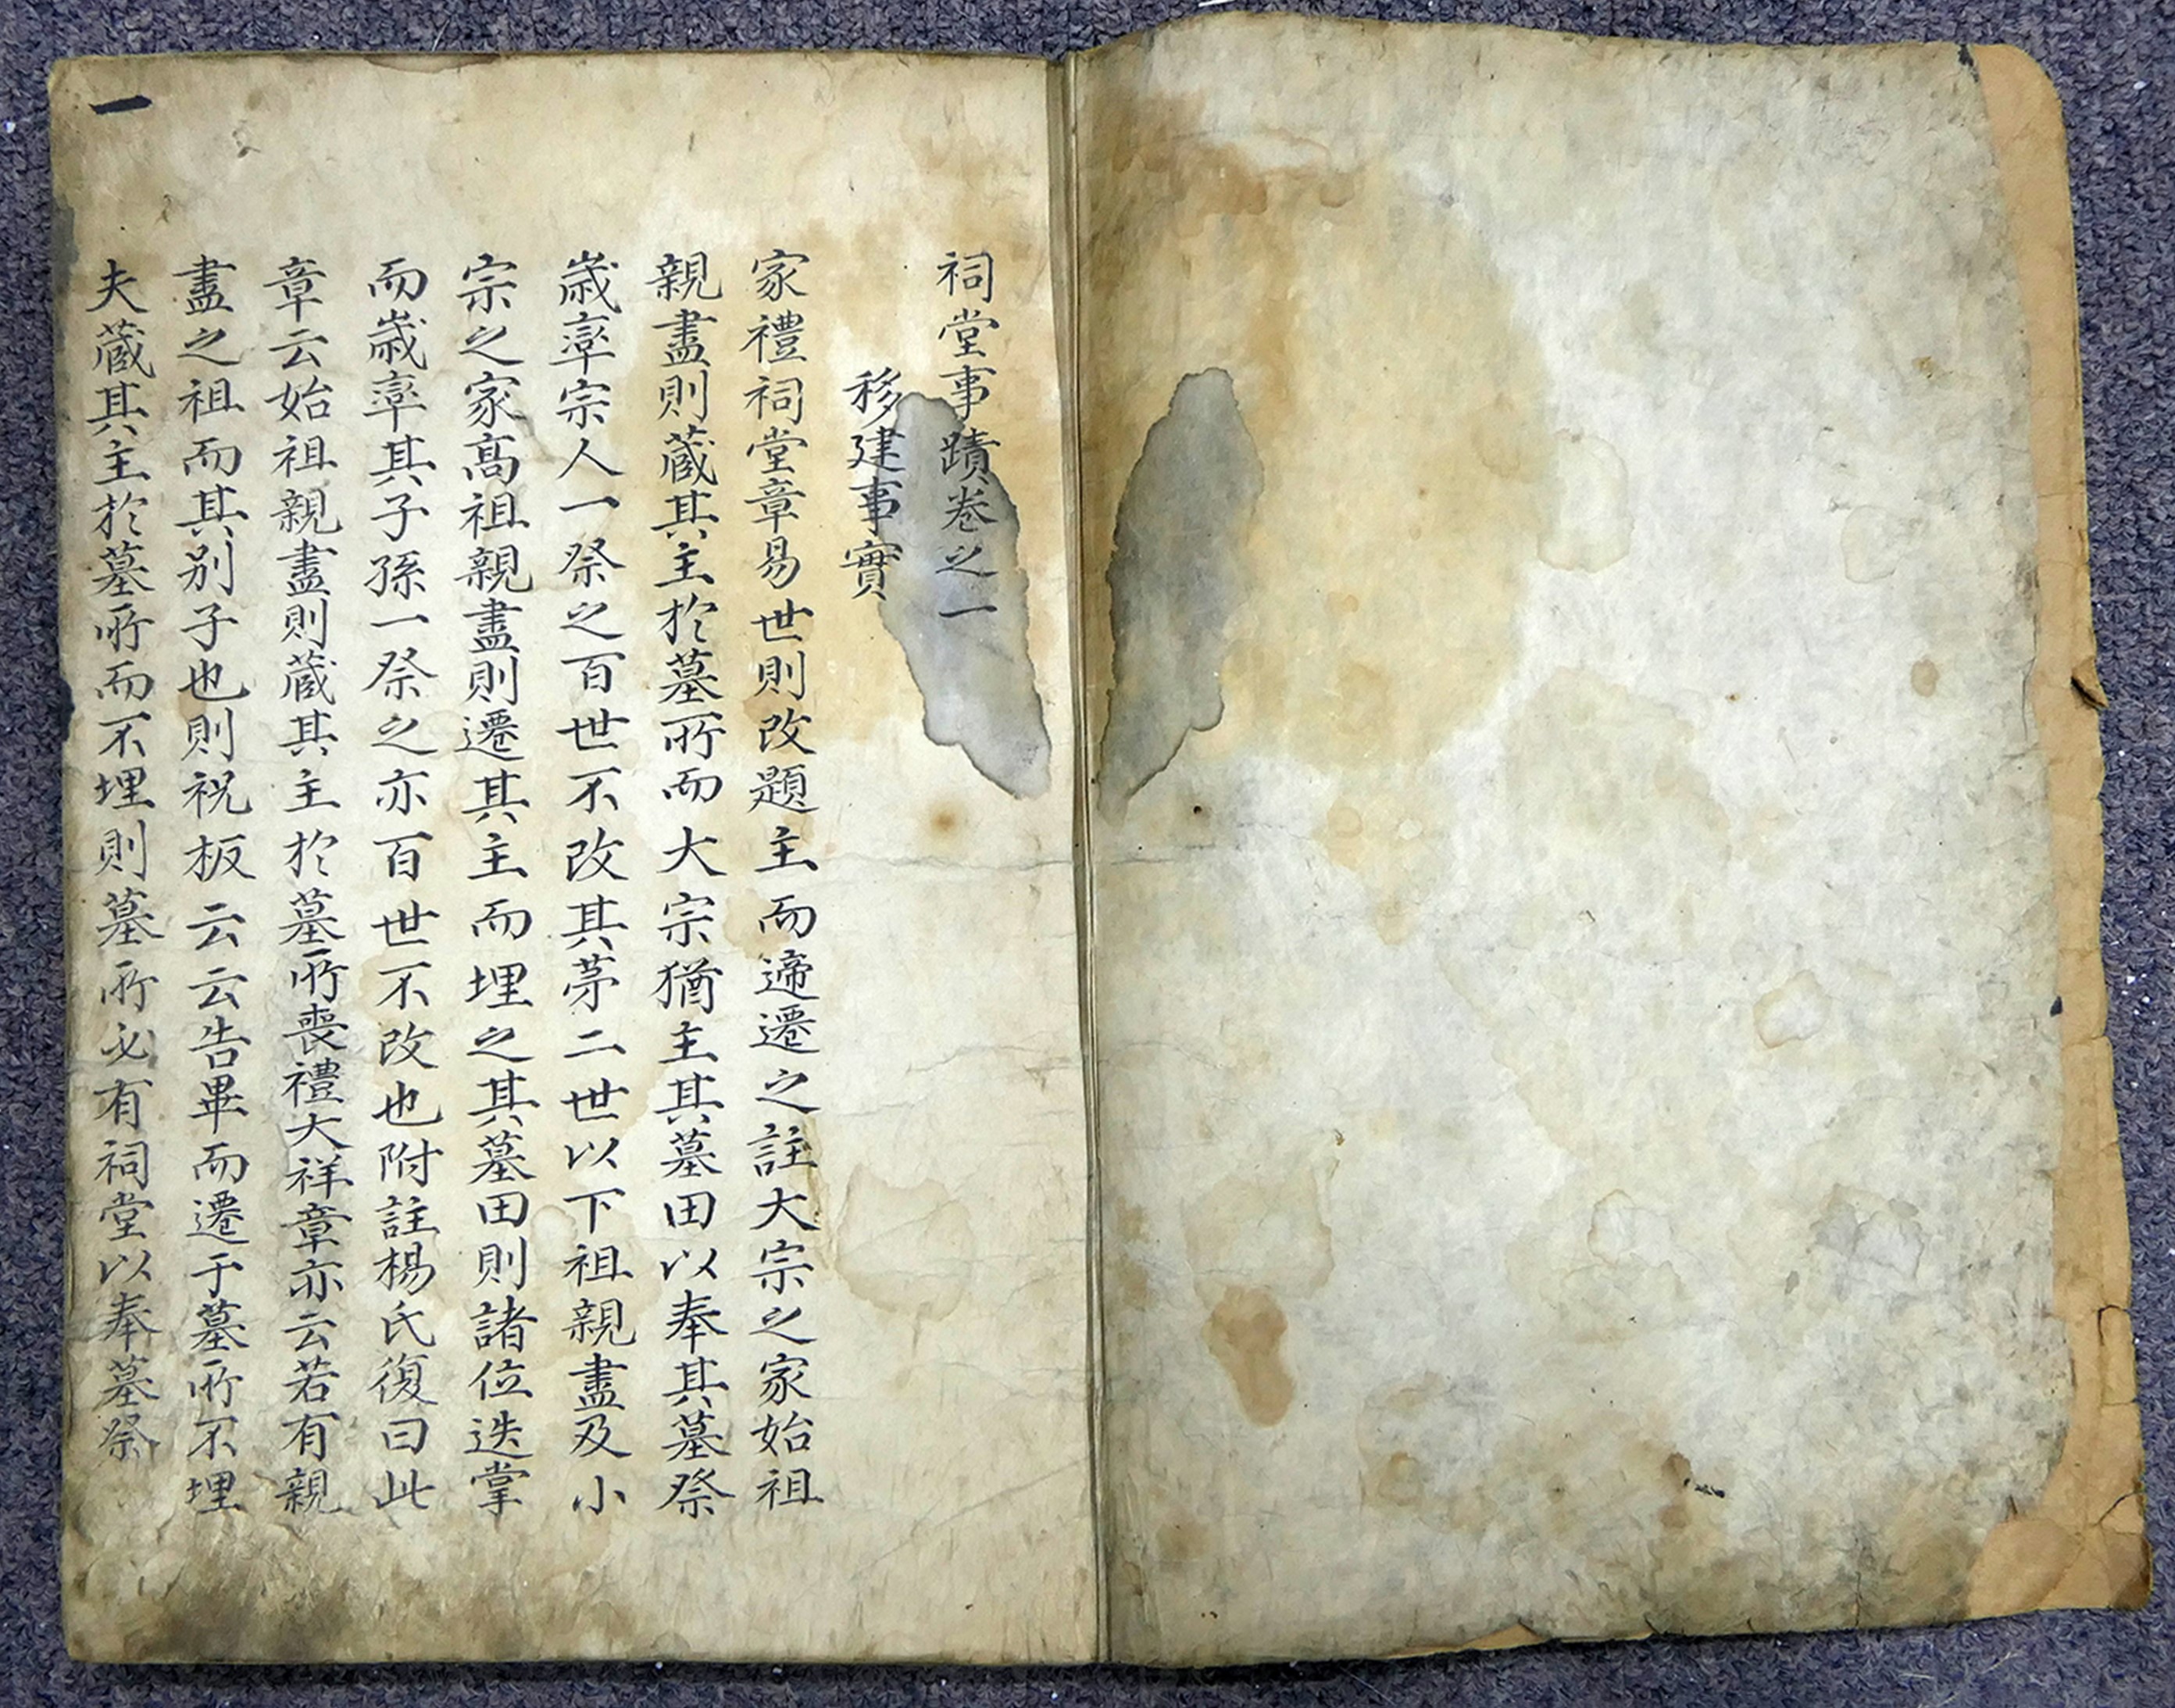 祠堂事蹟卷之一
移建事實
家禮祠堂章易世則改題主而遆遷之註大宗之家始祖
親盡則蔵其主於墓所而大宗猶主其墓田以奉其墓祭
歳率宗人一祭之百世不改其苐二世以下祖親盡及小
宗之家高祖親盡則遷其主而埋之其墓田則諸位迭掌
而歳率其子孫一祭之亦百世不改也附註楊氏復曰此
章云始祖親盡則蔵其主於墓所喪禮大祥章亦云若有親
盡之祖而其别子也則祝板云云告畢而遷于墓所不埋
夫蔵其主於墓所而不埋則墓所必有祠堂以奉墓祭
一